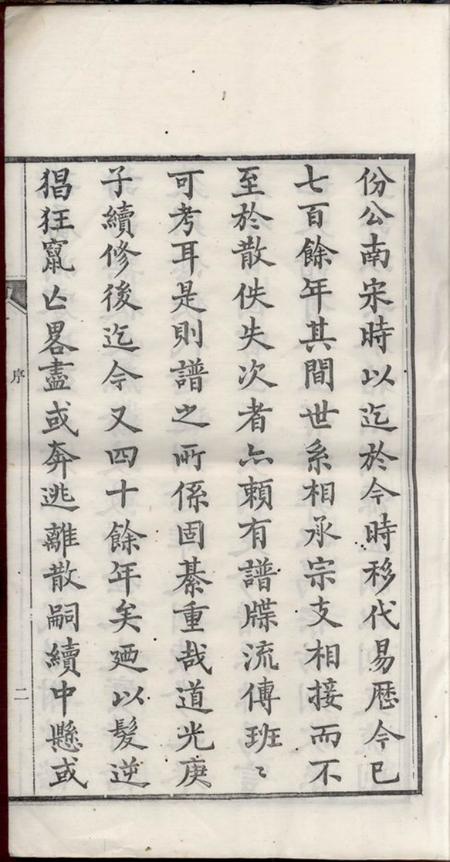 份公南宋時以迄於今時移代易歷今已
七百餘年其間世系相承宗支相接而不
至於散佚失次者亦賴有譜牒流傳班〻
可考耳是則譜之所係固綦重哉道光庚
子續修後迄今又四十餘年矣廼以髮逆
猖狂竄亾畧盡或奔逃離散嗣續中懸或
序
二